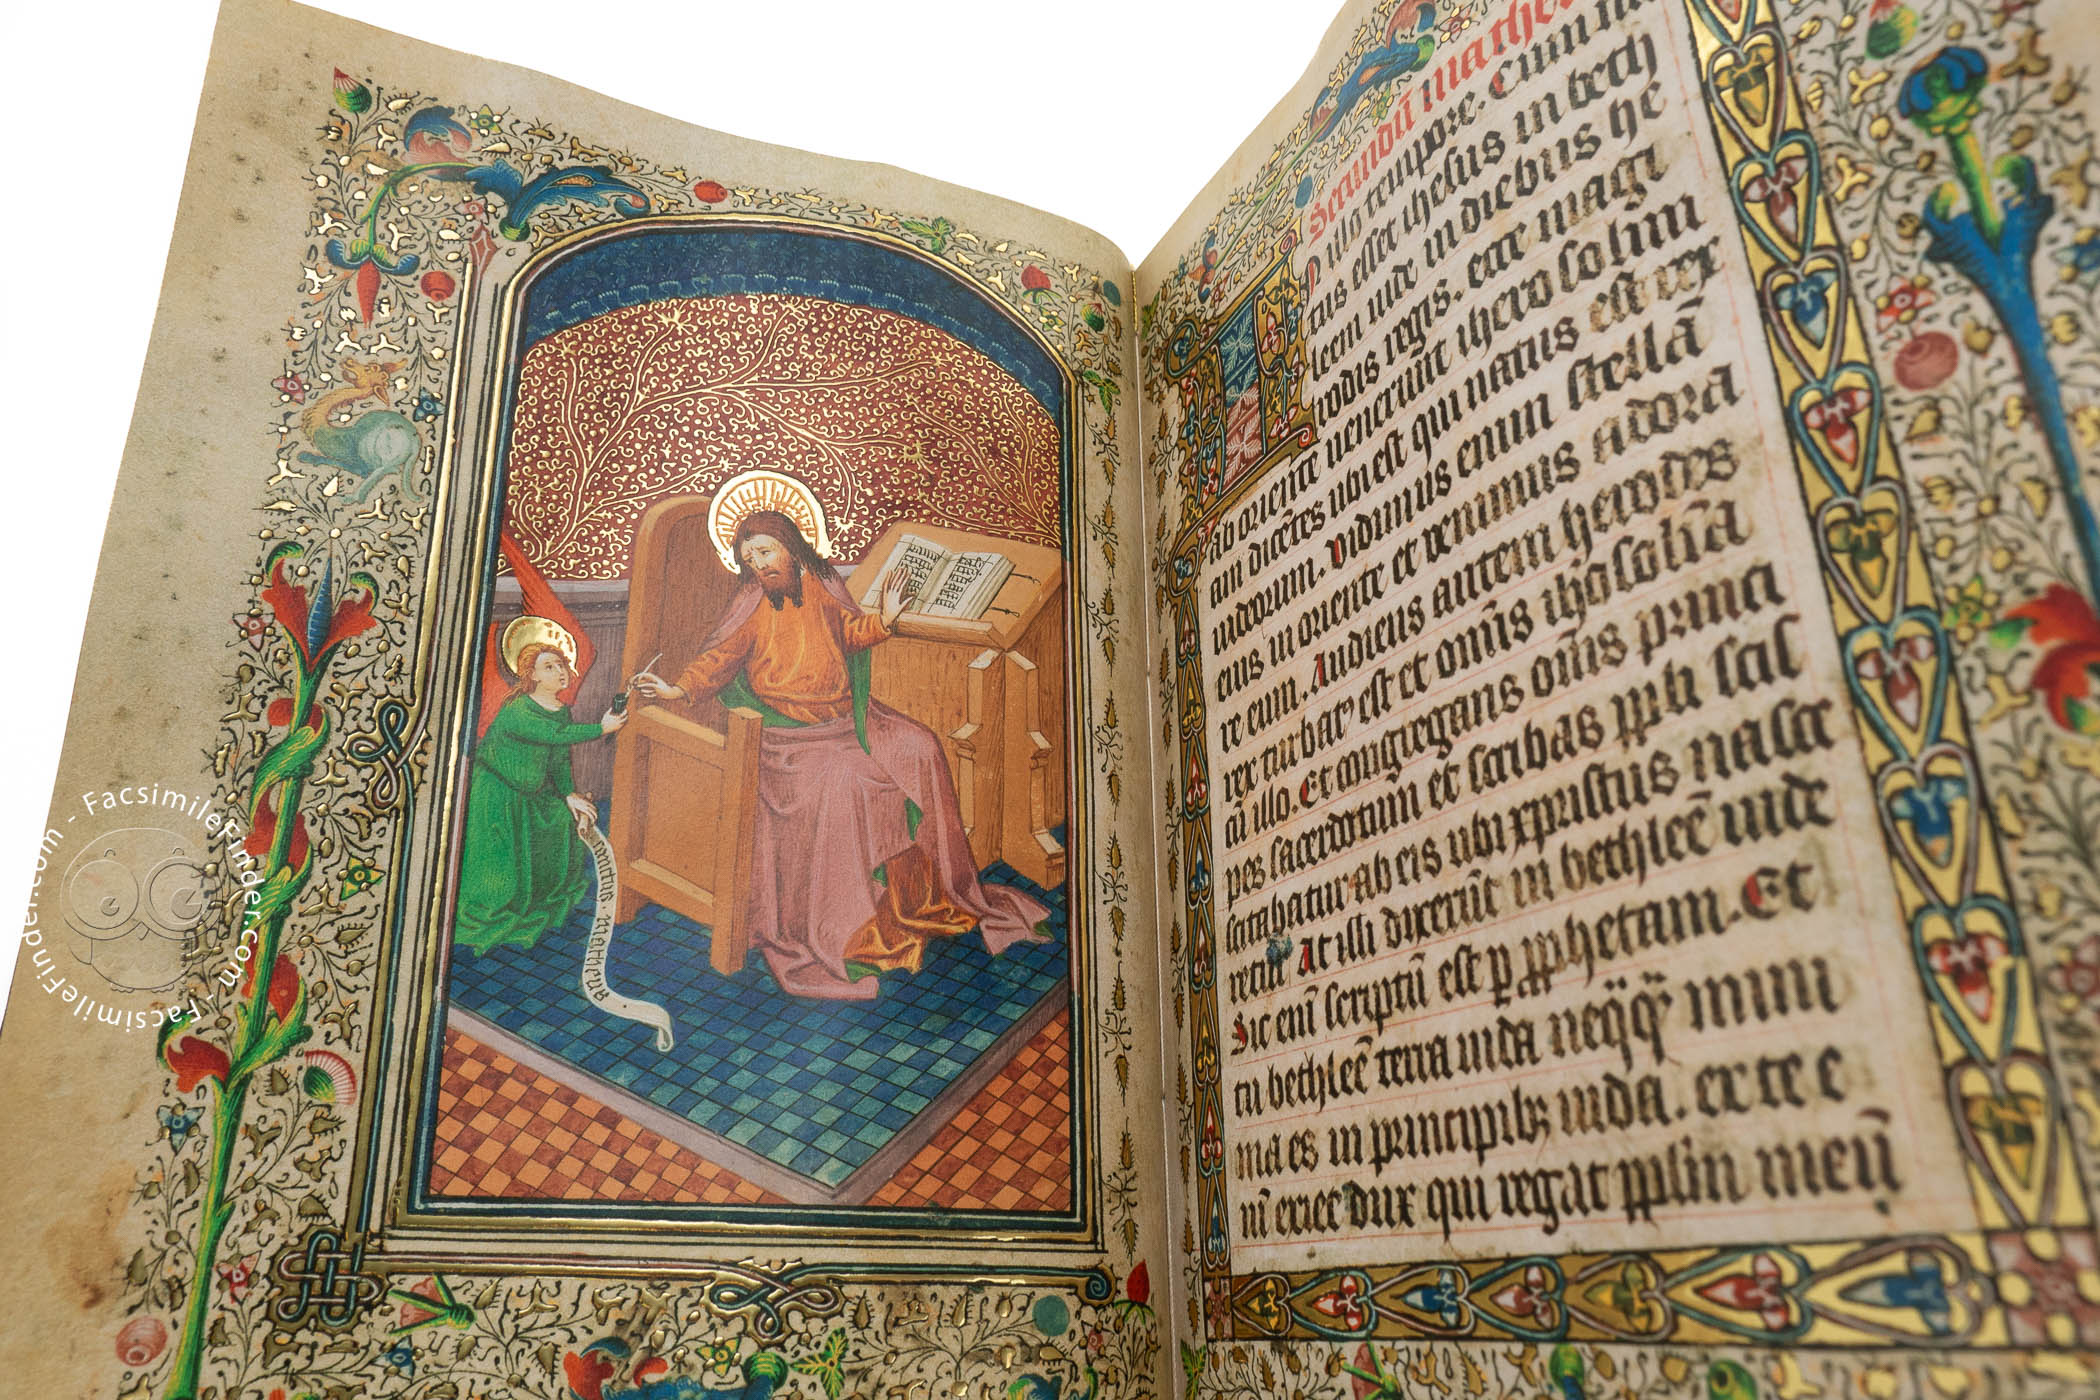 sanctus matheus
Secundū matheū
In illo tempore. Cum na
tus esset ihesus in beth
leem iude in diebus he
rodis regis. ecce magi
ab oriente uenerunt iherosolim
am dicētes ubi est qui natus est rex
iudeorum. Vidimus enim stellā
eius in oriente et uenimus adora
re eum. Audiens autem herodes
rex turbatꝰ est et om̄is ihosolimā
cū illo. Et congregans om̄s princi
pes sacerdotum et scribas ppli scis
citabatur ab eis ubi xpristus nasce
retur At illi dixerūt in bethleē iude
Sic enī scriptū est p pphetam. Et
tu bethleē terra iuda neqq̄ mini
ma es in principibꝫ iuda. ex te e
nī exiet dux qui regat pplm meū
FacsimileFinder.com - FacsimileFinder.com - FacsimileFinder.com